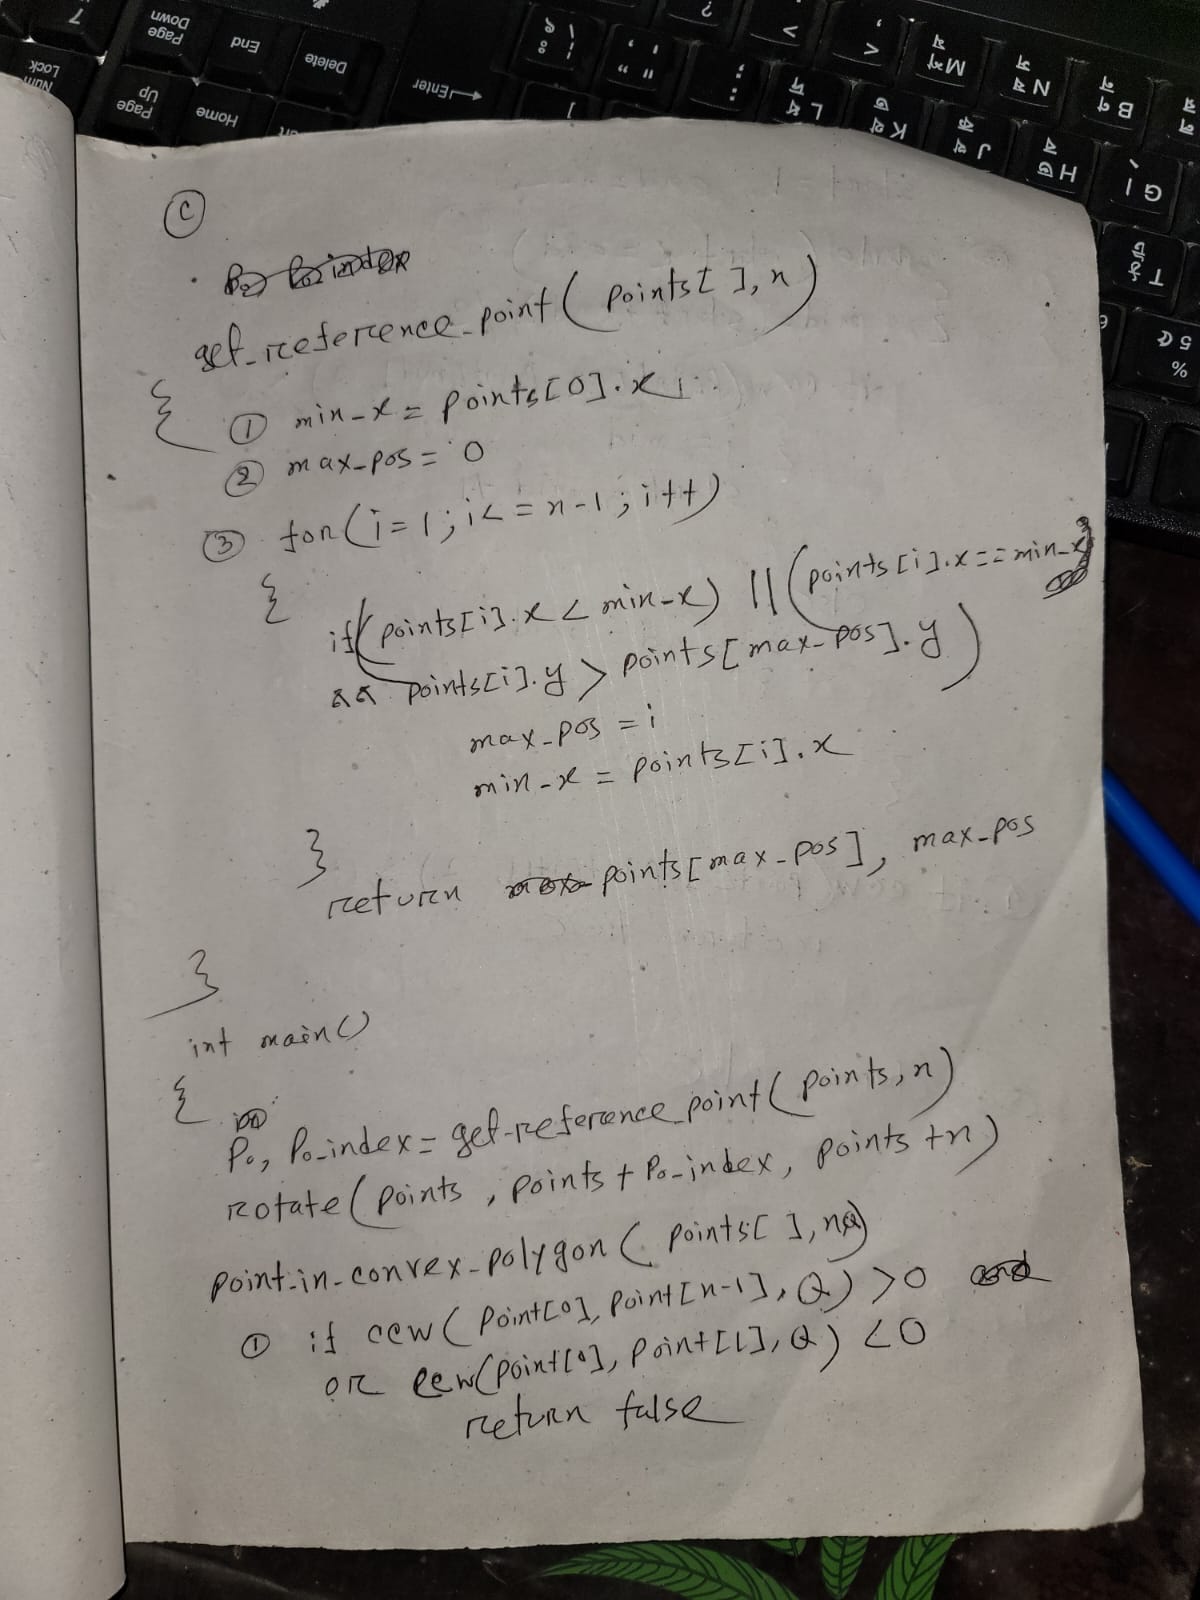 Page Down
End
Delete
Num Lock
Page Up
Home
Enter
C
get_reference_point( points[ ], n)
{
① min_x = points[0].x;
② max_pos = 0
③ for(i=1; i<=n-1; i++)
{
if(points[i].x < min_x) || (points[i].x == min_x
&& points[i].y > points[max_pos].y)
max_pos = i
min_x = points[i].x
}
return points[max_pos], max_pos
}
int main()
{
P0, P0_index = get_reference_point( points, n)
rotate( points, points + P0_index, points + n)
point_in_convex_polygon( points[ ], n, Q)
① if ccw( point[0], point[n-1], Q) > 0
or ccw(point[0], point[1], Q) < 0
return false